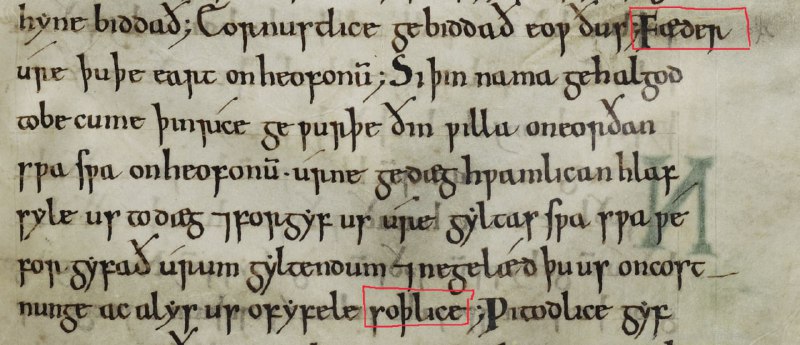 hyne biddað; Eornustlice gebiddað eoƿ ðus; Fæder
úre þu þe eart on heofonū; Si þin nama gehalgod
tobecume þin ríce geƿurþe ðin ƿilla on eorðan
sƿa sƿa on heofonū· úrne gedæghƿamlican hlaf
syle us todæg ⁊ forgyf us úre gyltas sƿa sƿa ƿé
forgyfað úrum gyltendum ⁊ ne gelǽd þu us on cost
nunge ac alys us of yfele soþlice; Ƿitodlice gyf